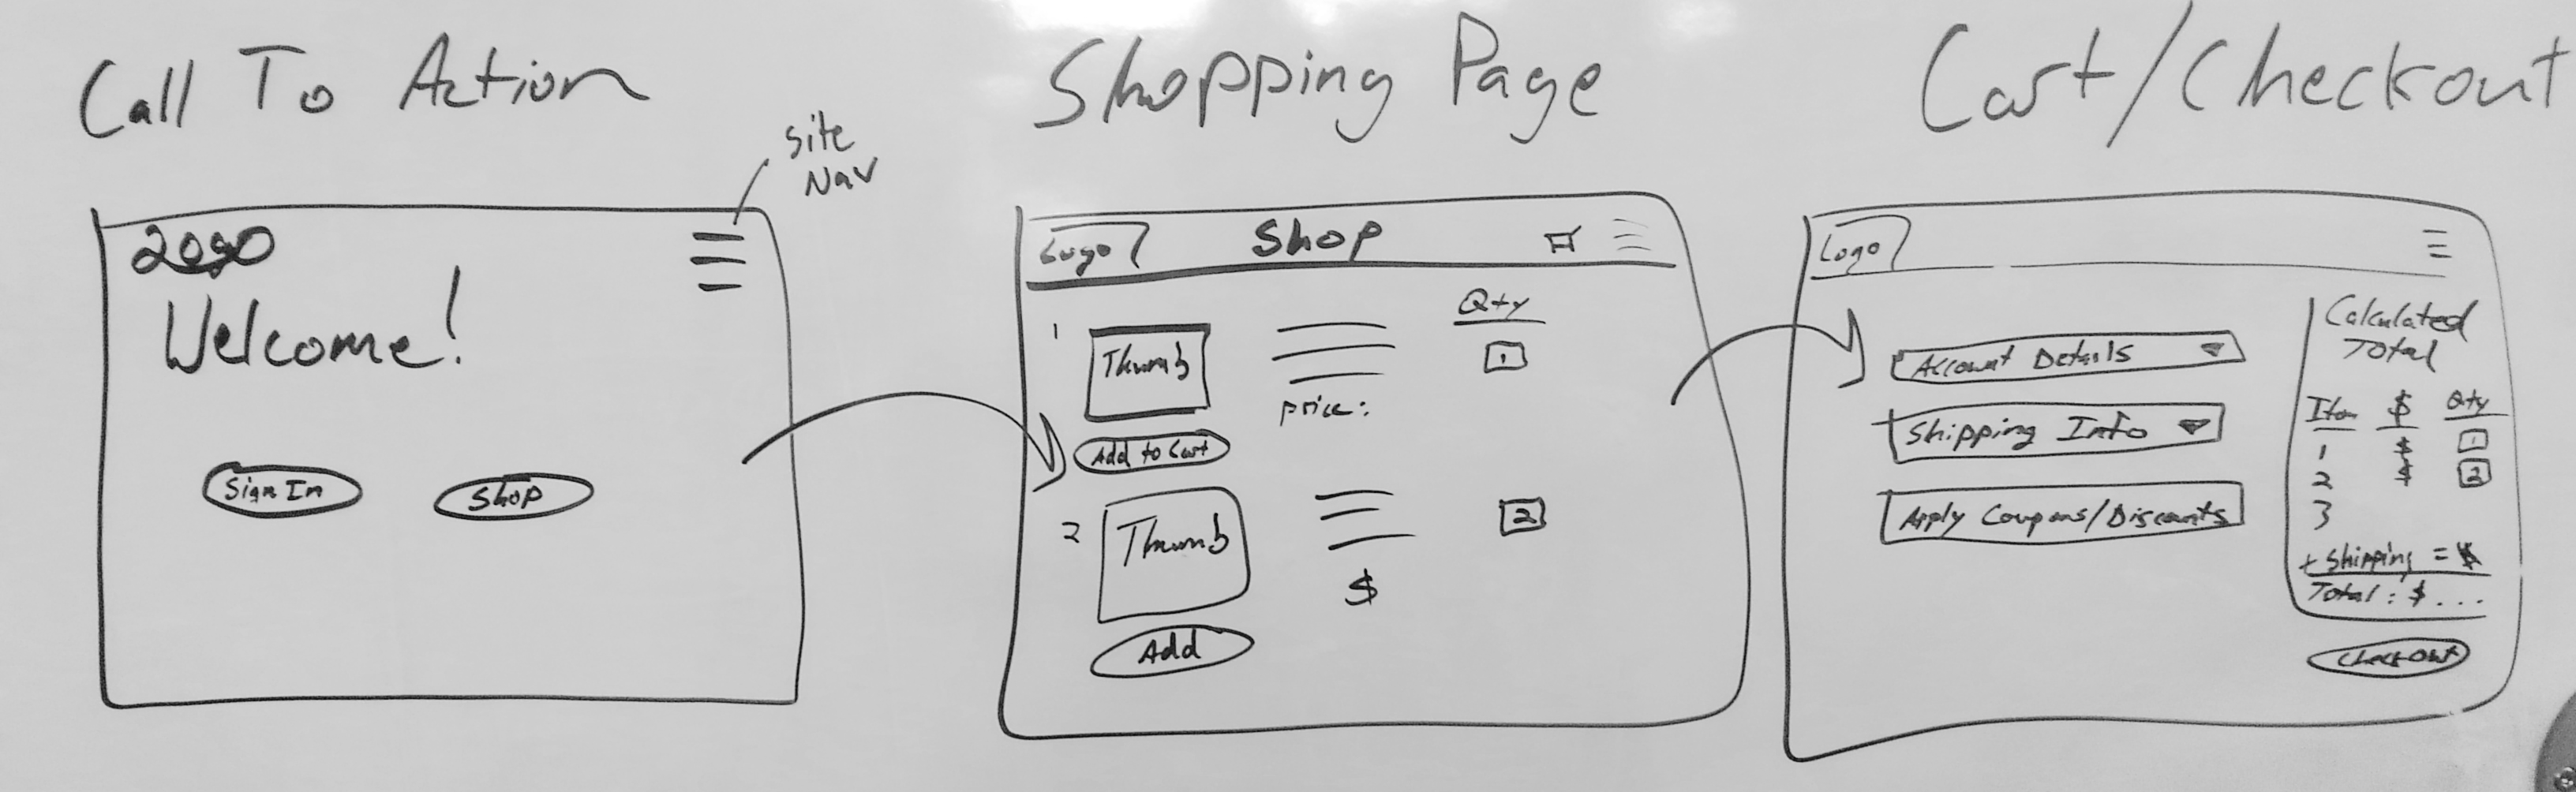 Call To Action
Site
Nav
Welcome!
Sign In
Shop
Shopping Page
Logo
Shop
Qty
1
Thumb
1
price:
Add to Cart
2
Thumb
2
$
Add
Cart/Checkout
Logo
Account Details
Shipping Info
Apply Coupons/Discounts
Calculated
Total
Item $ Qty
1 $ 1
2 $ 2
3
+ Shipping = $
Total: $...
Checkout